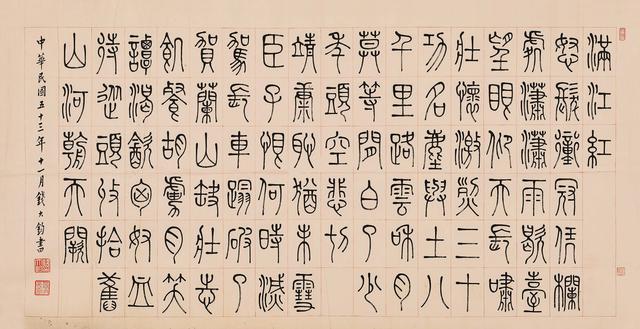 滿江紅
怒髮衝冠凭欄
處瀟瀟雨歇臺
望眼仰天長嘯
壯懷激烈三十
功名塵與土八
千里路雲和月
莫等閒白了少
年頭空悲切
靖康恥猶未雪
臣子恨何時滅
駕長車蹋破了
賀蘭山缺壯志
飢餐胡虜肉笑
譚渴飲匈奴血
待從頭收拾舊
山河朝天闕
中華民國五十三年十一月錢大鈞書